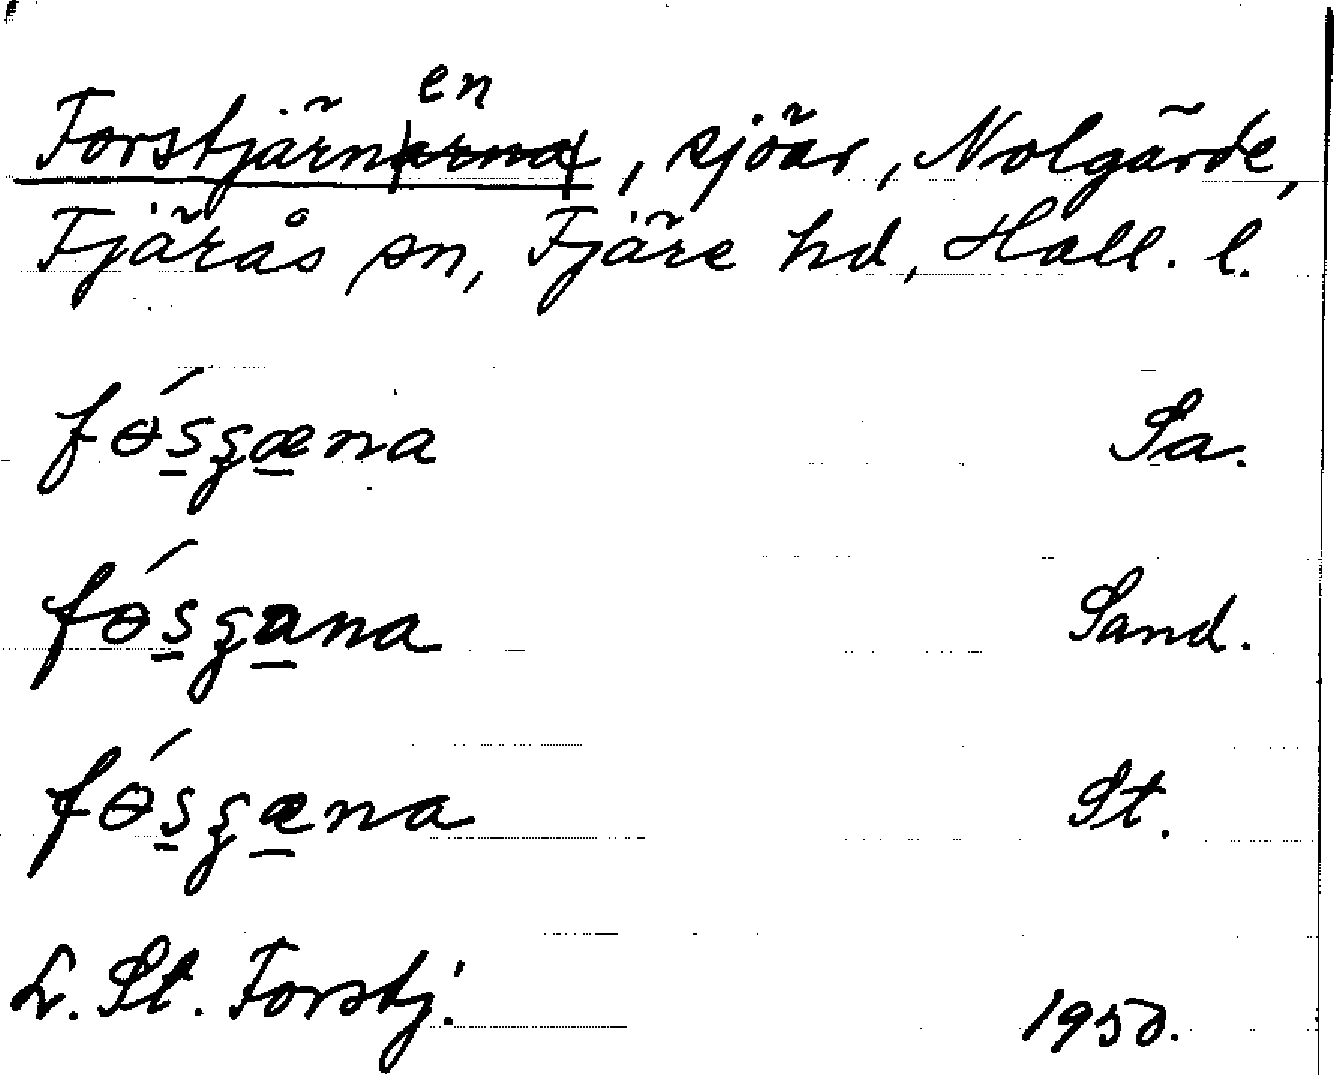 Forstjärnen, sjöar, Nolgärde,
Fjärås sn, Fjäre hd, Hall. l.
fɵ́sʒæna Sa.
fɵ́sʒana Sand.
fɵ́sʒæna St.
L. St. Forstj. 1950.